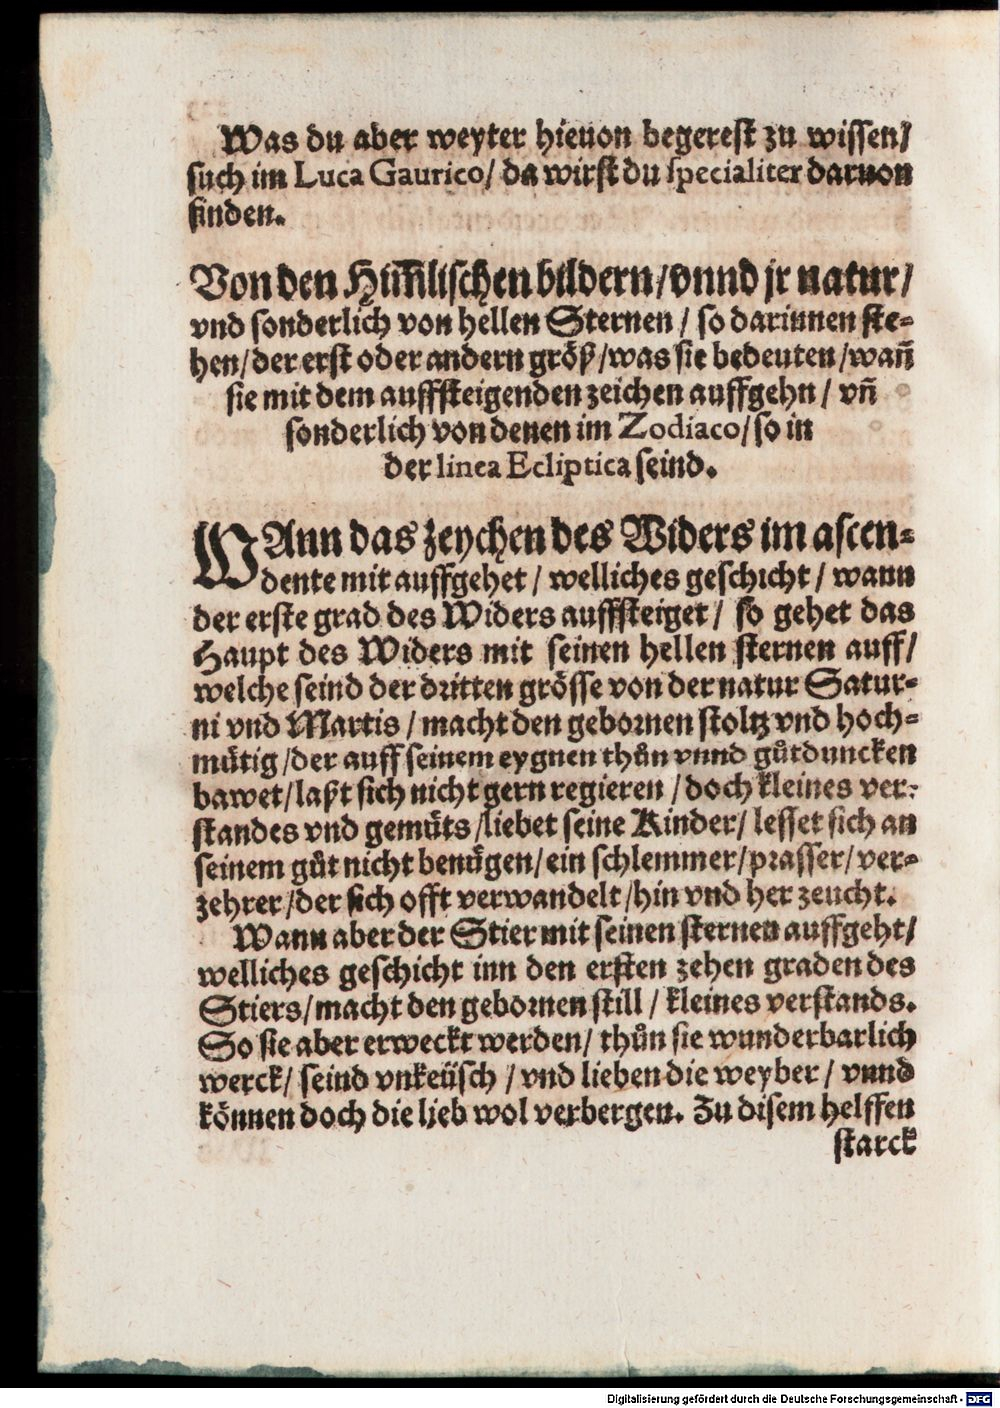 Was du aber weyter hieuon begerest zu wissen/
such im Luca Gaurico/ da wirst du specialiter daruon
finden.
Von den Him̃lischen bildern/vnnd jr natur/
vnd sonderlich von hellen Sternen / so darinnen ste-
hen/der erst oder andern größ/was sie bedeuten/wañ
sie mit dem auffsteigenden zeichen auffgehn / vñ
sonderlich von denen im Zodiaco/so in
der linea Ecliptica seind.
WAnn das zeychen des Widers im ascen-
dente mit auffgehet / welliches geschicht / wann
der erste grad des Widers auffsteiget / so gehet das
Haupt des Widers mit seinen hellen sternen auff/
welche seind der dritten grösse von der natur Satur-
ni vnd Martis / macht den gebornen stoltz vnd hoch-
mütig /der auff seinem eygnen thůn vnnd gůtduncken
bawet/laßt sich nicht gern regieren / doch kleines ver-
standes vnd gemüts /liebet seine Kinder/ lesset sich an
seinem gůt nicht benügen/ein schlemmer/prasser/ver-
zehrer/der sich offt verwandelt /hin vnd her zeucht.
Wann aber der Stier mit seinen sternen auffgeht/
welliches geschicht inn den ersten zehen graden des
Stiers/macht den gebornen still / kleines verstands.
So sie aber erweckt werden/ thůn sie wunderbarlich
werck/ seind vnkeüsch / vnd lieben die weyber / vnnd
können doch die lieb wol verbergen. Zu disem helffen
starck
Digitalisierung gefördert durch die Deutsche Forschungsgemeinschaft - DFG